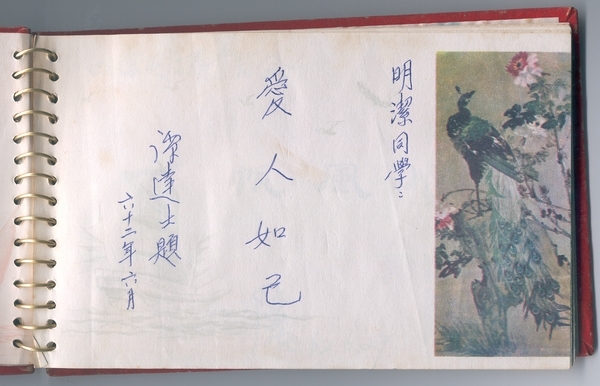 明潔同學：
愛人如己
達士題
六十二年六月